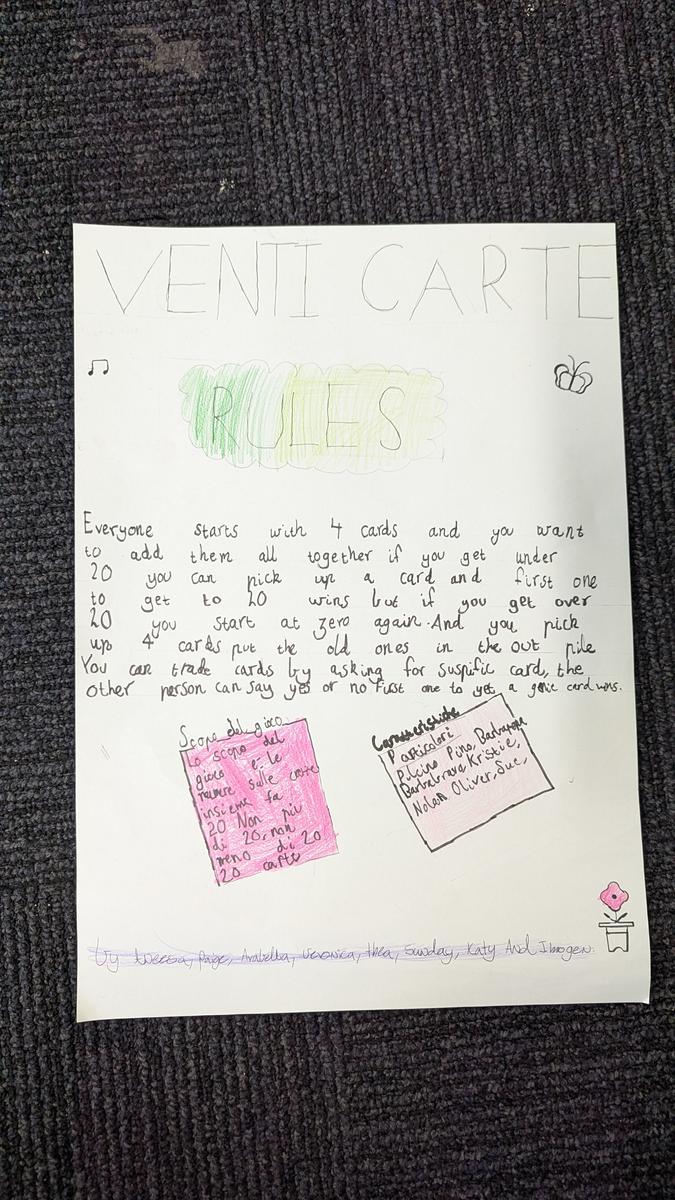 VENTI CARTE
RULES
Everyone starts with 4 cards and you want
to add them all together if you get under
20 you can pick up a card and first one
to get to 20 wins but if you get over
20 you start at zero again. And you pick
up 4 cards put the old ones in the out pile
You can trade cards by asking for suspific card, the
other person can say yes or no First one to get a genie card wins.
Scopo del gioco
Lo scopo del
gioco e: le
numere sulle carte
insieme fa
20 Non piu
di 20, non
meno di 20
20 carte
Caracteristiche
Particolari
Plcino Pino, Barbarona
Barbabrava Kristie,
Nolan Oliver, Sue,
by Paige, Arabella, Veronica, thea, Sunday, Katy And Imogen.